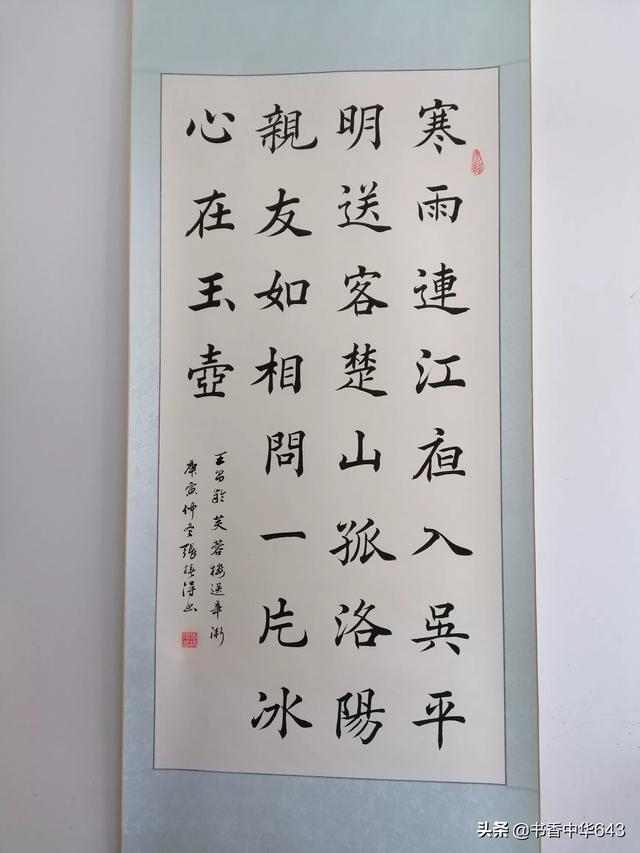 寒雨連江亱入吳平
明送客楚山孤洛陽
親友如相問一片冰
心在玉壺
王昌齡芙蓉樓送辛漸
庚寅仲冬張
头条 @书香中华643